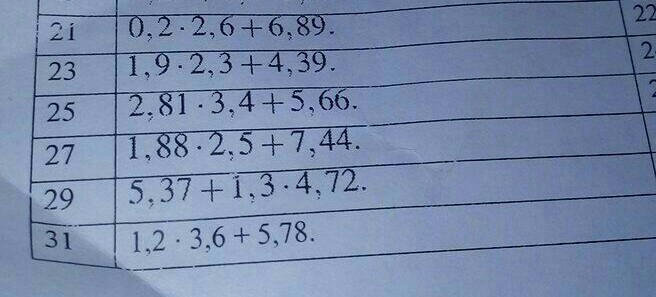 21 0,2 · 2,6 + 6,89.
23 1,9 · 2,3 + 4,39.
25 2,81 · 3,4 + 5,66.
27 1,88 · 2,5 + 7,44.
29 5,37 + 1,3 · 4,72.
31 1,2 · 3,6 + 5,78.
22